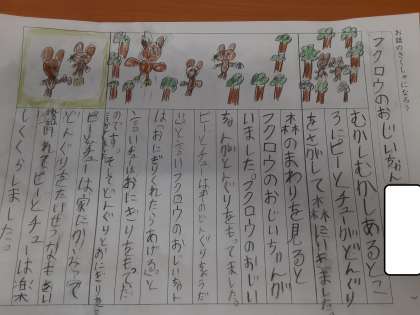 お話のさくしゃになろう
フクロウのおじいちゃん
むかしむかしあるとこ
ろにピーとチューがどんぐり
をさがして森にいきました。
森のまわりを見ると
フクロウのおじいちゃんが
いました。フクロウのおじい
ちゃんがどんぐりをもってました。
ピーとチューは
というとフクロウのおじいちゃん
は、おにぎりくれたらあげる。と
チューはおにぎりをもってた
のです。そしてどんぐりとおにぎりを
ピーとチューは家にかえって
どんぐりをたべ
ピーとチューは楽
しくくらしました。